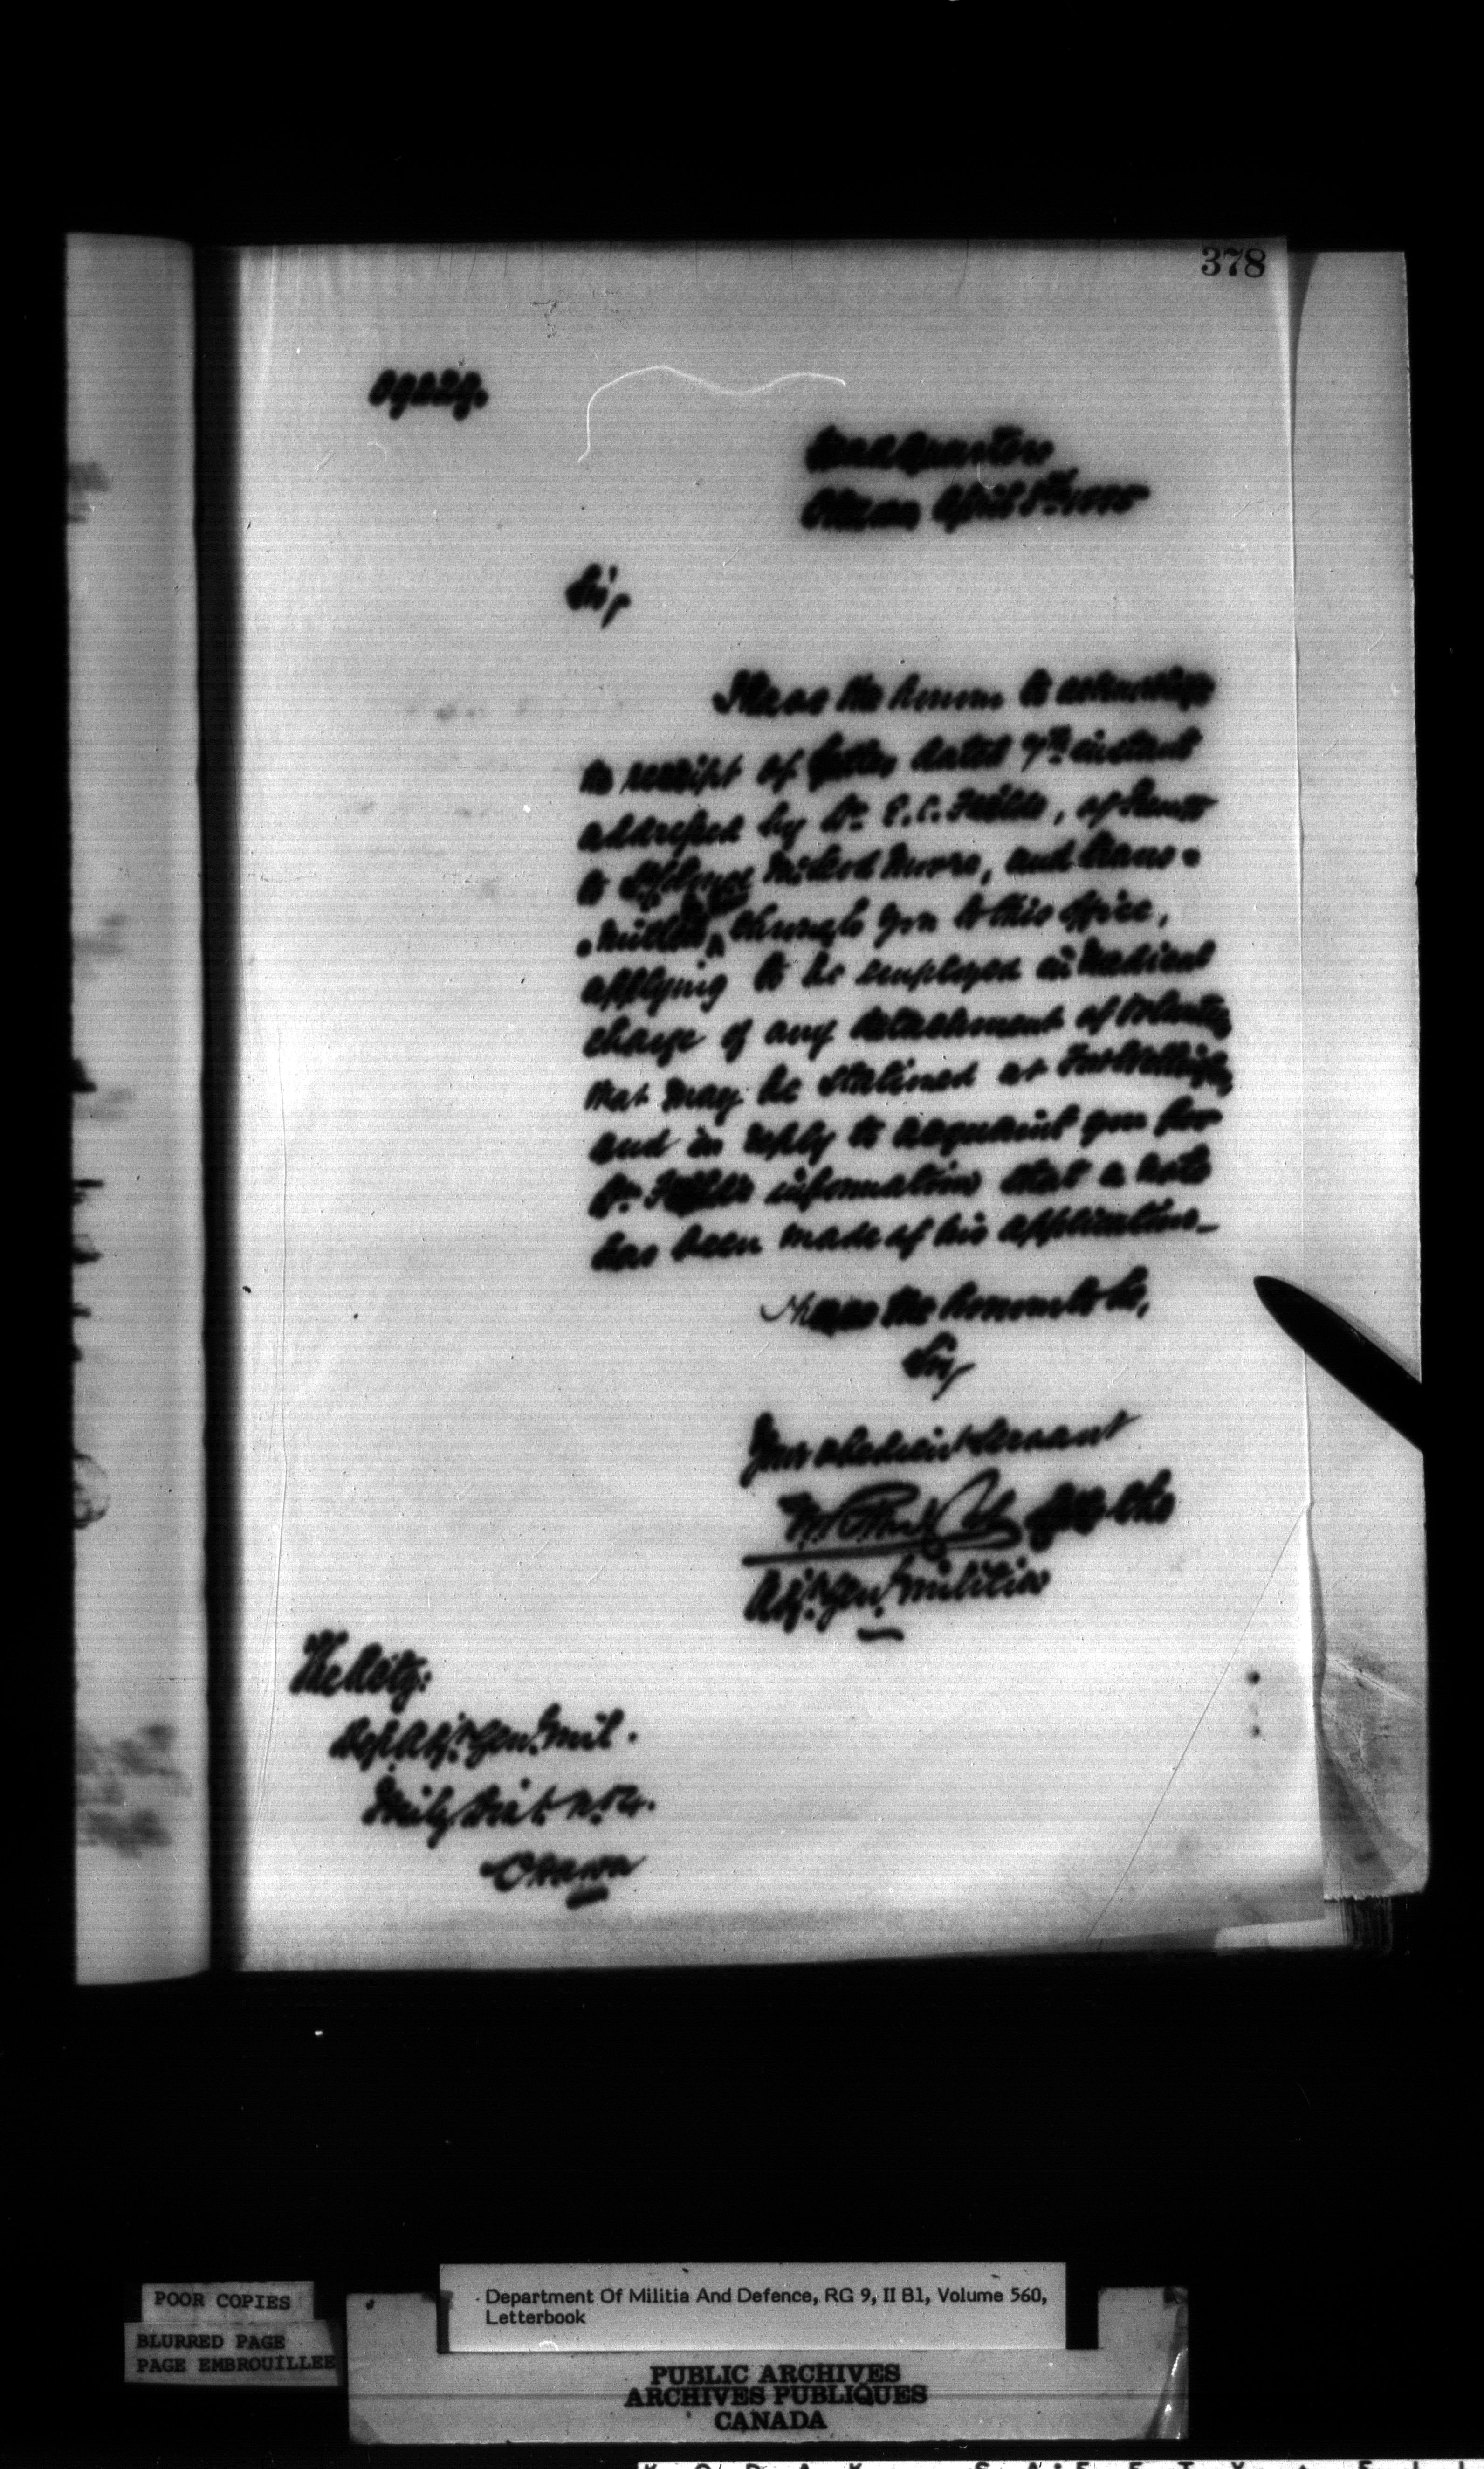 378
Headquarters
Ottawa April 8th 1885
Sir,
I have the honour to acknowledge
the receipt of letter dated 7th instant
addressed by Dr. E.C. of
to McLeod Moore, and trans-
-mitted through you to this office,
applying to be employed in medical
charge of any detachment of Volunteers
that may be stationed at Fort Wellington,
and in reply to acquaint you for
Dr. information that a note
has been made of his application_
I have the honour to be,
Sir,
Your obedient servant
for the
Adjt. Genl. Militia
The Actg:
Dep. Adjt. Genl. Mil.
Mily Dist. No. 4.
Ottawa
POOR COPIES
BLURRED PAGE
PAGE EMBROUILLEE
Department Of Militia And Defence, RG 9, II B1, Volume 560,
Letterbook
PUBLIC ARCHIVES
ARCHIVES PUBLIQUES
CANADA